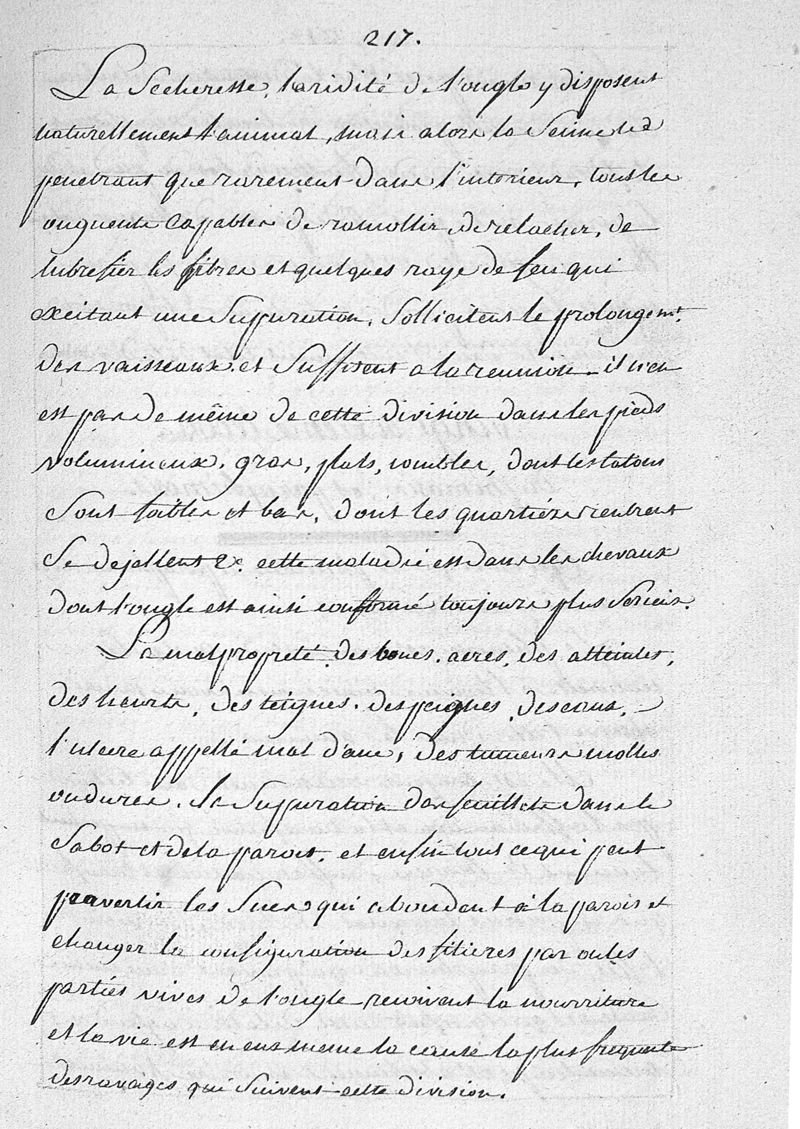 217.
La Secheresse, l'aridité de l'ongle y disposent
naturellement l'animal, mais alors la Seime ne
penetrant que rarement dans l'interieur, tous les
onguents capables de ramollir, de relacher, de
lubrefier les fibres et quelques raye de feu qui
excitant une Suppuration, Sollicitent le prolongemt.
des vaisseaux, et Suffisent a la reunion. il n'en
est pas de même de cette division dans les pieds
volumineux, gras, plats, combles, dont les talons
Sont foibles et bas, dont les quartiers rentrent
Se dejettent &c. cette maladie est dans les chevaux
dont l'ongle est ainsi conformé toujours plus Serieux.
La malpropreté, des boues, acres, des atteintes,
des heurts, des teignes, des peignes, des eaux,
l'ulcere appellé mal d'ane, des tumeurs molles
ou dures, la Supuration des feuillets dans le
Sabot et de la parois, et enfin tout ce qui peut
pervertir les Sucs qui abondent a la parois et
changer la configuration des filieres par ou les
parties vives de l'ongle reçoivent la nourriture
et la vie est en eux meme la cause la plus frequente
des ravages qui Suivent cette division.